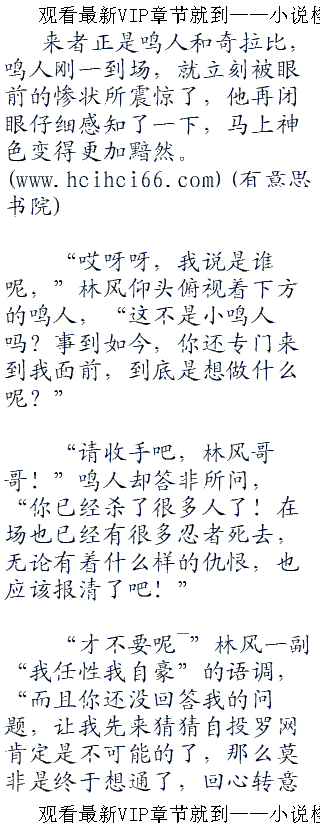 观看最新VIP章节就到——小说
来者正是鸣人和奇拉比，
鸣人刚一到场，就立刻被眼
前的惨状所震惊了，他再闭
眼仔细感知了一下，马上神
色变得更加黯然。
(www.hcihci66.com)(有意思
书院)
“哎呀呀，我说是谁
呢，”林风仰头俯视着下方
的鸣人，“这不是小鸣人
吗？事到如今，你还专门来
到我面前，到底是想做什么
呢？”
“请收手吧，林风哥
哥！”鸣人却答非所问，
“你已经杀了很多人了！在
场也已经有很多忍者死去，
无论有着什么样的仇恨，也
应该报清了吧！”
“才不要呢~”林风一副
“我任性我自豪”的语调，
“而且你还没回答我的问
题，让我先来猜猜自投罗网
肯定是不可能的了，那么莫
非是终于想通了，回心转意
观看最新VIP章节就到——小说